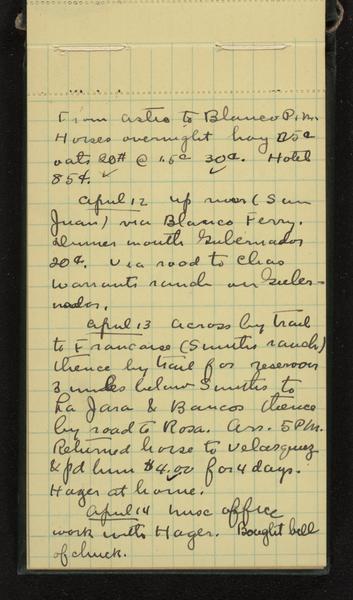 From Astro to Blanco P.M.
Horses overnight hay 75¢
oats 20# @ 1.5¢ 30¢. Hotel
85¢.
April 12 up river (San
Juan) via Blanco Ferry.
Dinner mouth Gubernador
20¢. Via road to Chas
Warrants ranch on Guber-
nador.
April 13 across by trail
to Francaise (Smiths ranch)
thence by trail for reservoir
3 miles below Smiths to
La Jara & Bancos thence
by road to Rosa. Arr. 5 P.M.
Returned horse to Velasquez
& pd him $4.00 for 4 days.
Hager at home.
April 14 misc office
work with Hager. Bought bill
of chuck.